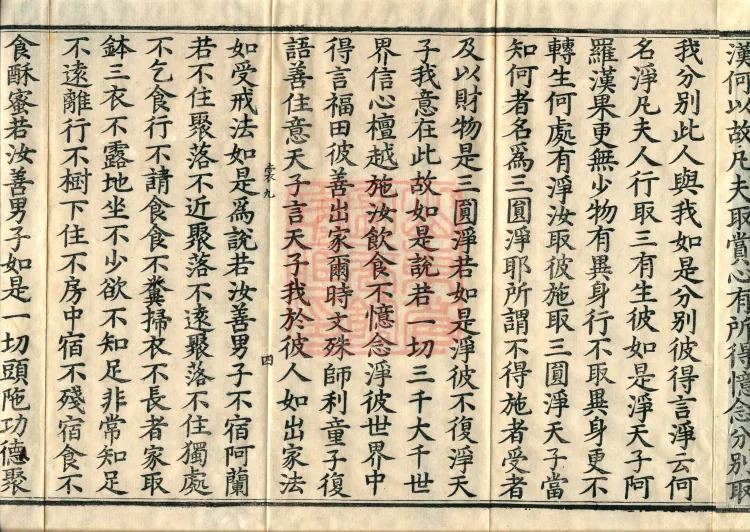 漢何以故凡夫取賞心有所得憶念分別取
我分別此人與我如是分別彼得言淨云何
名淨凡夫人行取三有生彼如是淨天子阿
羅漢果更無少物有異身行不取異身更不
轉生何處有淨汝取彼施取三圓淨天子當
知何者名為三圓淨耶所謂不得施者受者
及以財物是三圓淨若如是淨彼不復淨天
子我意在此故如是說若一切三千大千世
界信心檀越施汝飲食不憶念淨彼世界中
得言福田彼善出家爾時文殊師利童子復
語善住意天子言天子我於彼人如出家法
裳九
四
如受戒法如是為說若汝善男子不宿阿蘭
若不住聚落不近聚落不遠聚落不住獨處
不乞食行不請食食不糞掃衣不長者家取
鉢三衣不露地坐不少欲不知足非常知足
不遠離行不樹下住不房中宿不殘宿食不
食酥蜜若汝善男子如是一切頭陁功德聚